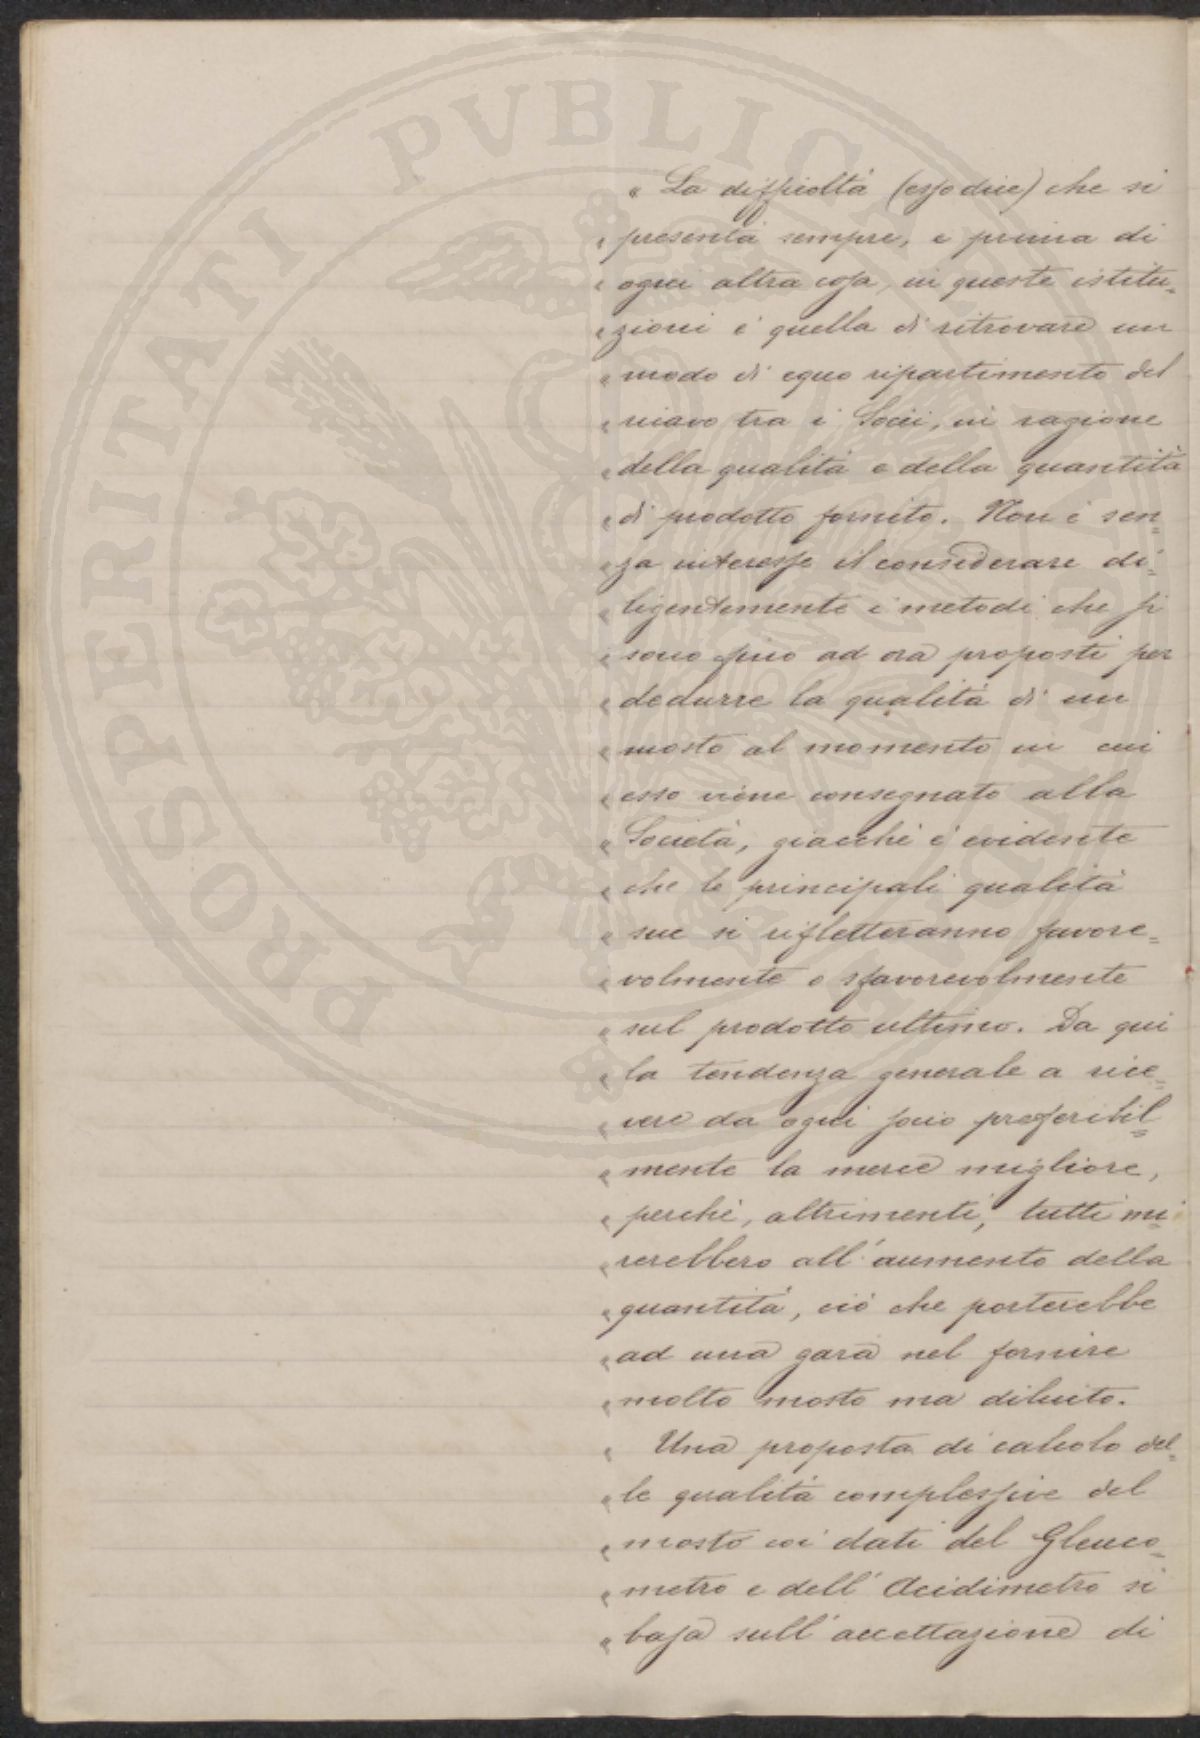 " La difficoltà (esso dice) che si
" presenta sempre, e prima di
" ogni altra cosa, in queste istitu=
" zioni è quella di ritrovare un
" modo di equo ripartimento del
" ricavo tra i Socii, in ragione
" della qualità e della quantità
" di prodotto fornito. Non è sen=
" za interesse il considerare di=
" ligentemente i metodi che si
" sono fino ad ora proposti per
" dedurre la qualità di un
" mosto al momento in cui
" esso viene consegnato alla
" Società, giacchè è evidente
" che le principali qualità
" sue si rifletteranno favore=
" volmente o sfavorevolmente
" sul prodotto ultimo. Da qui
" la tendenza generale a rice=
" vere da ogni socio preferibil=
" mente la merce migliore,
" perchè, altrimenti, tutti mi=
" rerebbero all'aumento della
" quantità, ciò che porterebbe
" ad una gara nel fornire
" molto mosto ma diluito.
" Una proposta di calcolo del=
" le qualità complessive del
" mosto coi dati del Gleuco=
" metro e dell'Acidimetro si
" basa sull'accettazione di
PROSPERITATI PVBLICAE